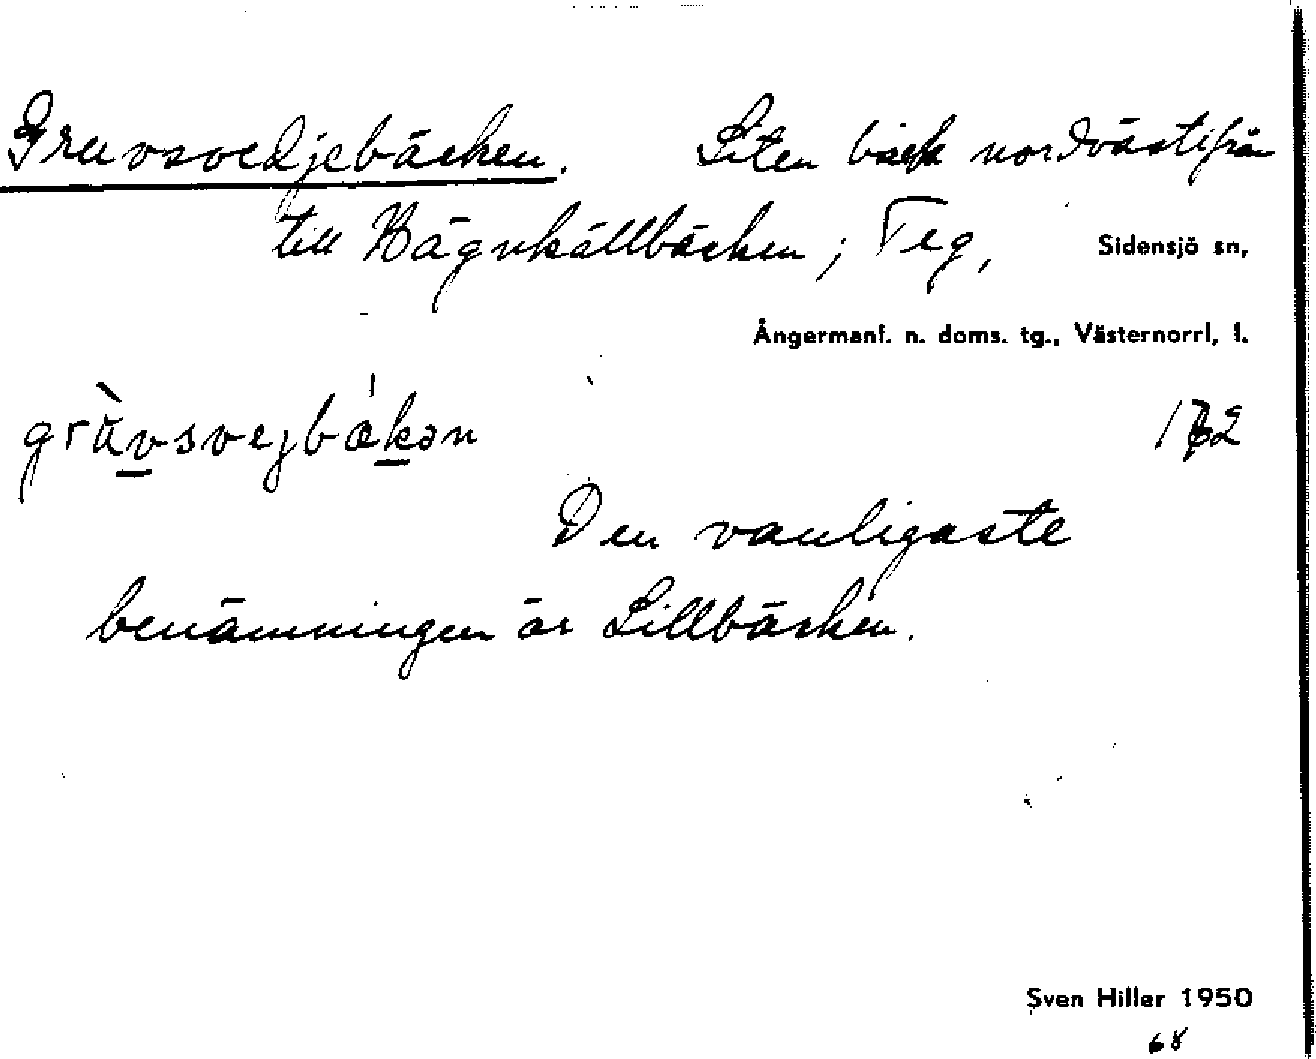 Gruvsvedjebäcken. Liten bäck nordvästifrån
till Hägnkällbäcken; Teg, Sidensjö sn,
Ångermanl. n. doms. tg., Västernorrl, l.
grùvsvejbǽkən
Den vanligaste
benämningen är Lillbäcken.
Sven Hiller 1950
68